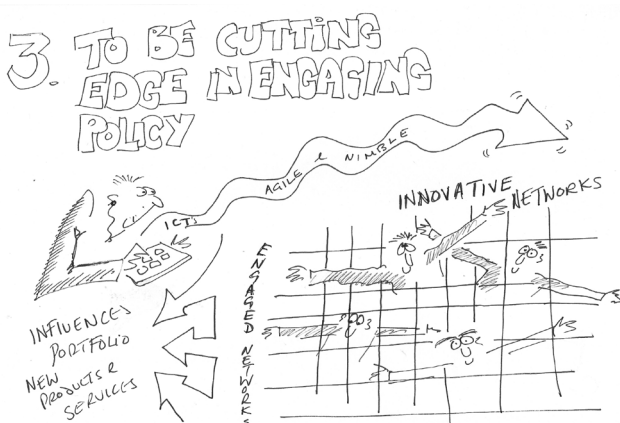 3. TO BE CUTTING
EDGE IN ENGAGING
POLICY
ICTs AGILE & NIMBLE
INNOVATIVE NETWORKS
ENGAGED NETWORKS
INFLUENCES
PORTFOLIO
NEW
PRODUCTS &
SERVICES